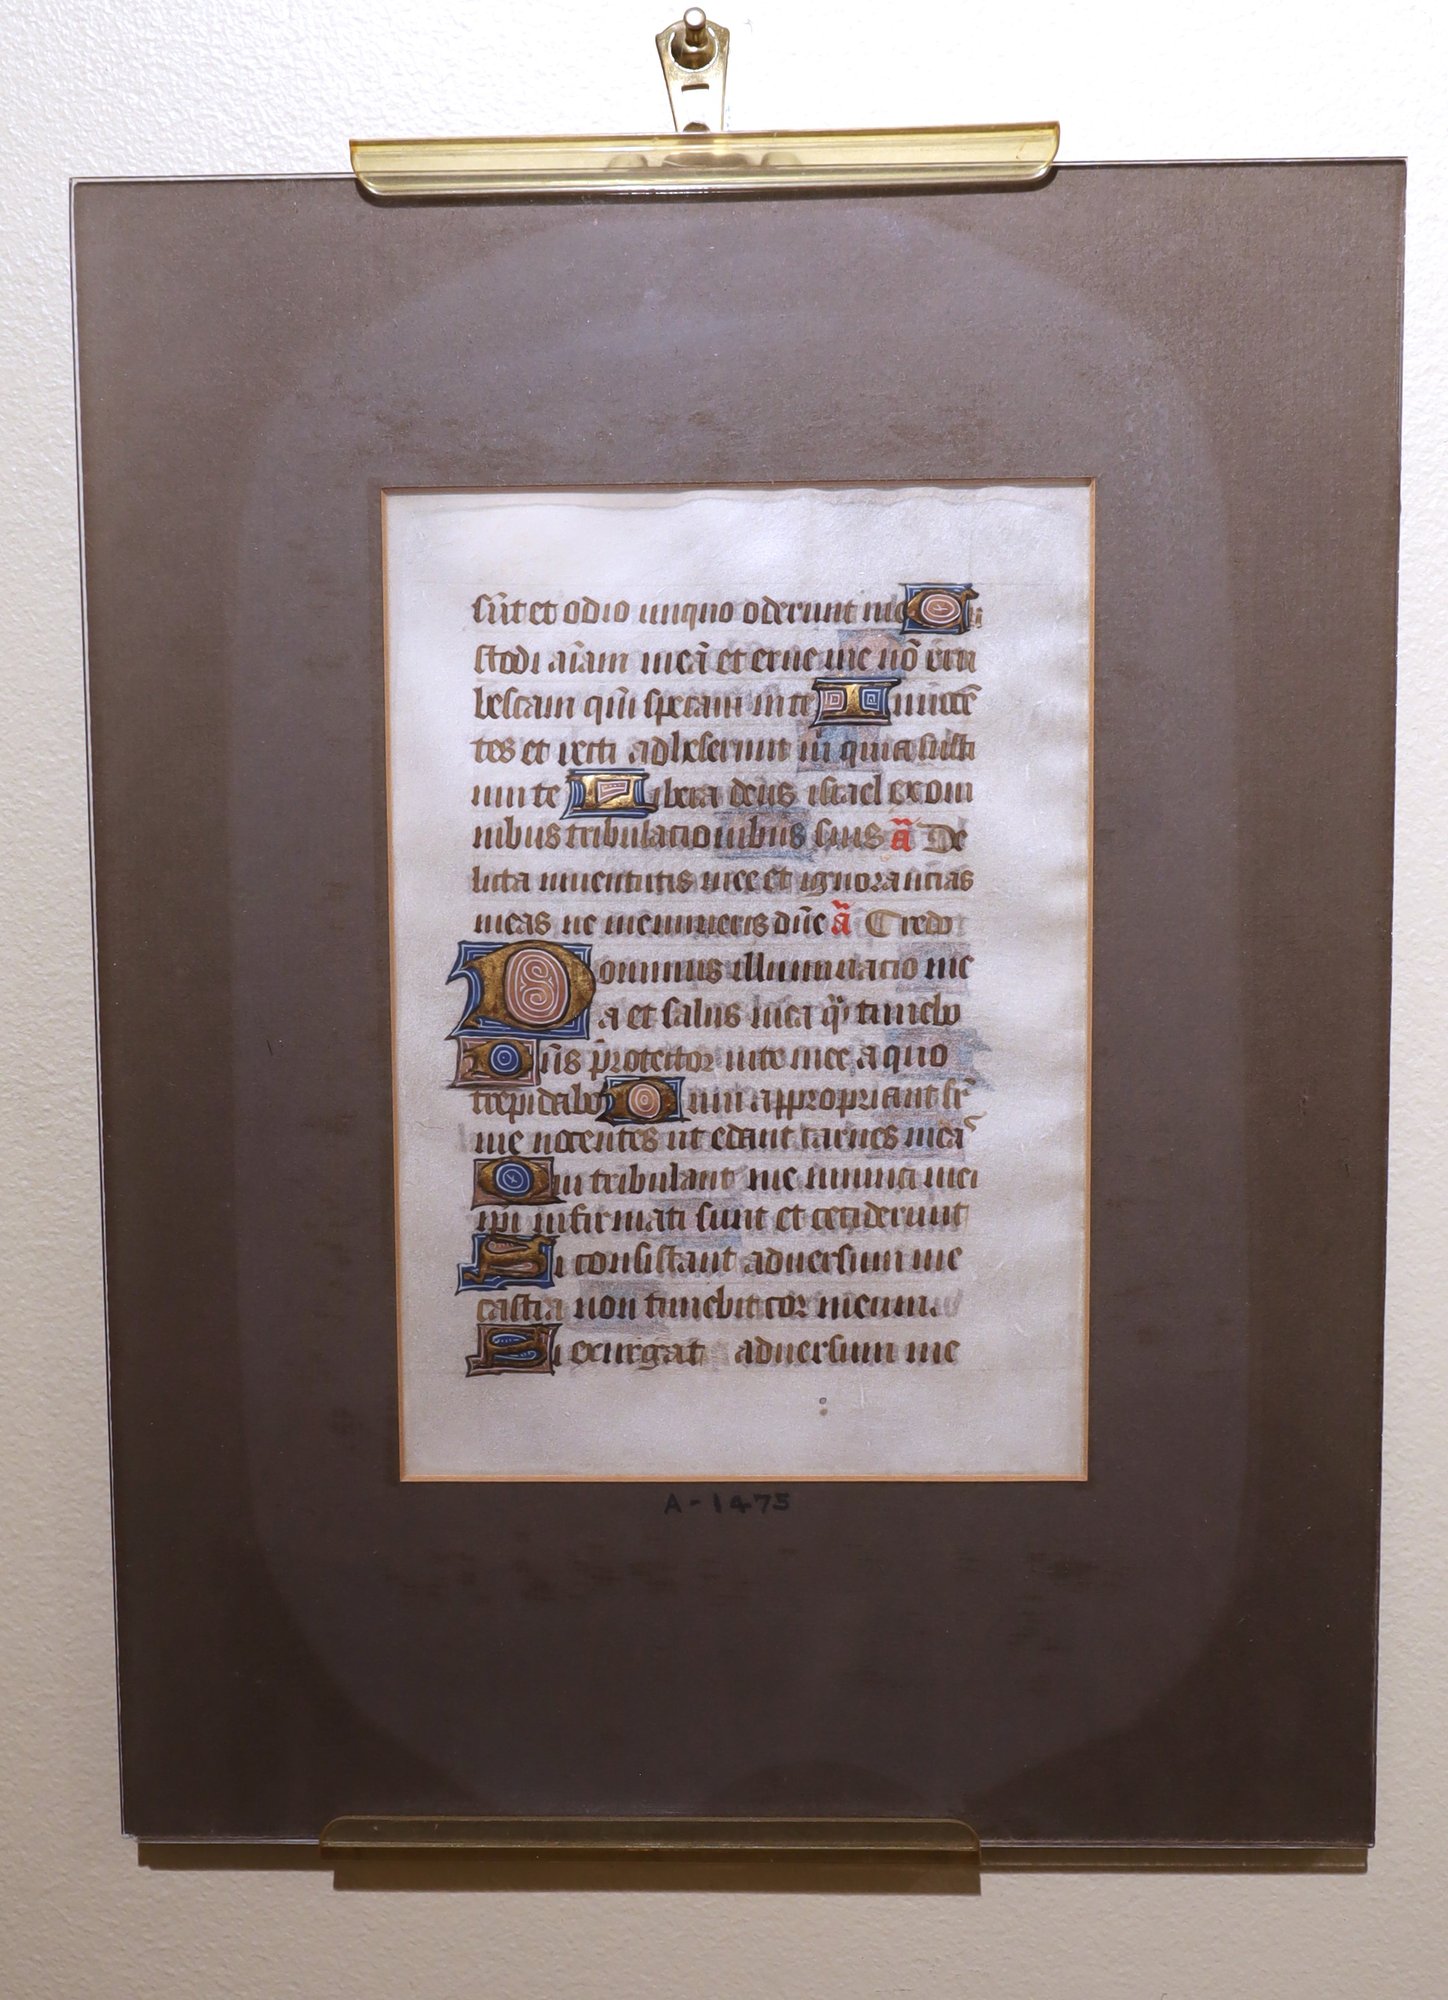 sūt et odio iniquo oderunt me Cu
stodi aīam meā et erue me nō eru
bescam qm̄ speraui in te Innocē
tes et recti adheserunt m̄ quia susti
nui te Libera deus israel ex om
nibus tribulacionibus suis ā De
licta iuuentutis mee et ignorancias
meas ne memineris dn̄e ā Credo
Dominus illuminacio me
a et salus mea q̄ timebo
Dn̄s protector uite mee a quo
trepidabo Dum appropriant sr̄
me nocentes ut edant carnes meaˢ
Qui tribulant me inimici mei
ipi infirmati sunt et ceciderunt
Si consistant aduersum me
castra non timebit cor meum.
Si exurgat aduersum me
A-1475